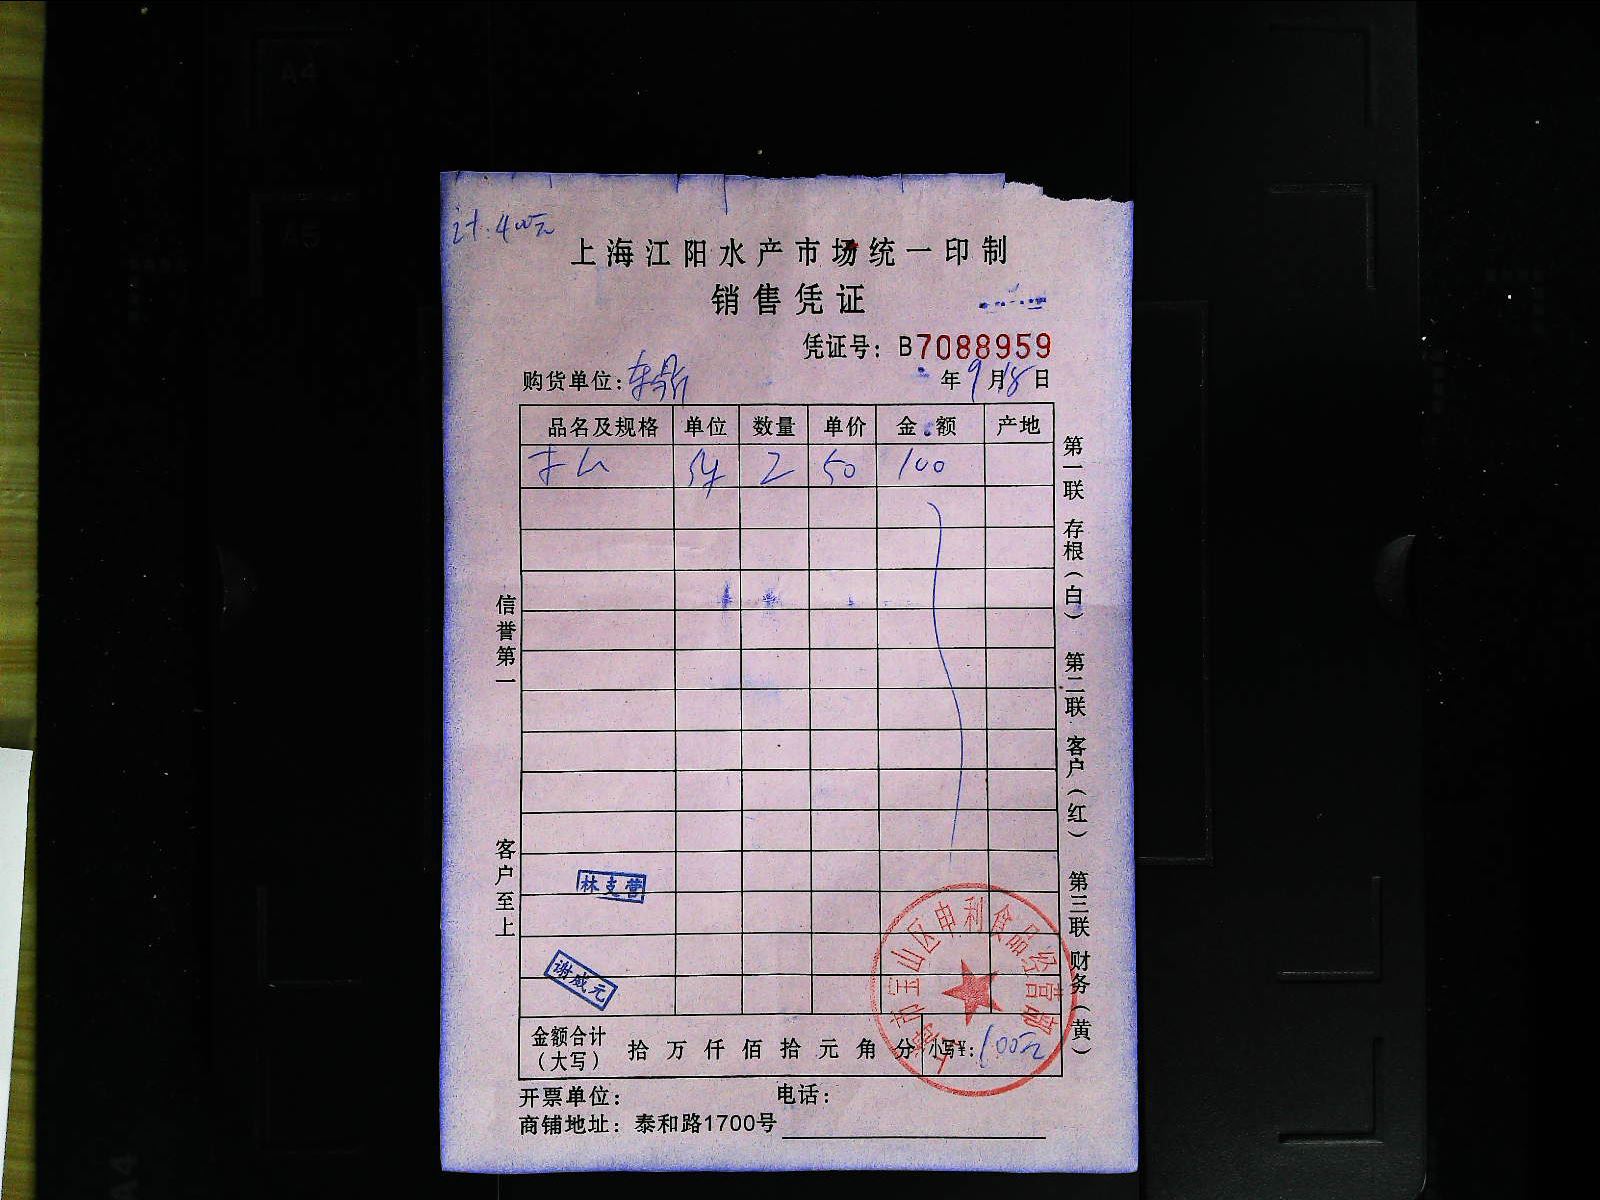 计:400元
上海江阳水产市场统一印制
销售凭证
凭证号: B7088959
购货单位:
年9月18日
品名及规格 单位 数量 单价 金额 产地
2 50 100
信誉第一
客户至上
第一联 存根(白) 第二联 客户(红) 第三联 财务(黄)
林支营
谢威元
上海市宝山区申利食品经营部
金额合计(大写) 拾万仟佰拾元角分 小写¥:100元
开票单位: 电话:
商铺地址: 泰和路1700号
A4
A5
A4